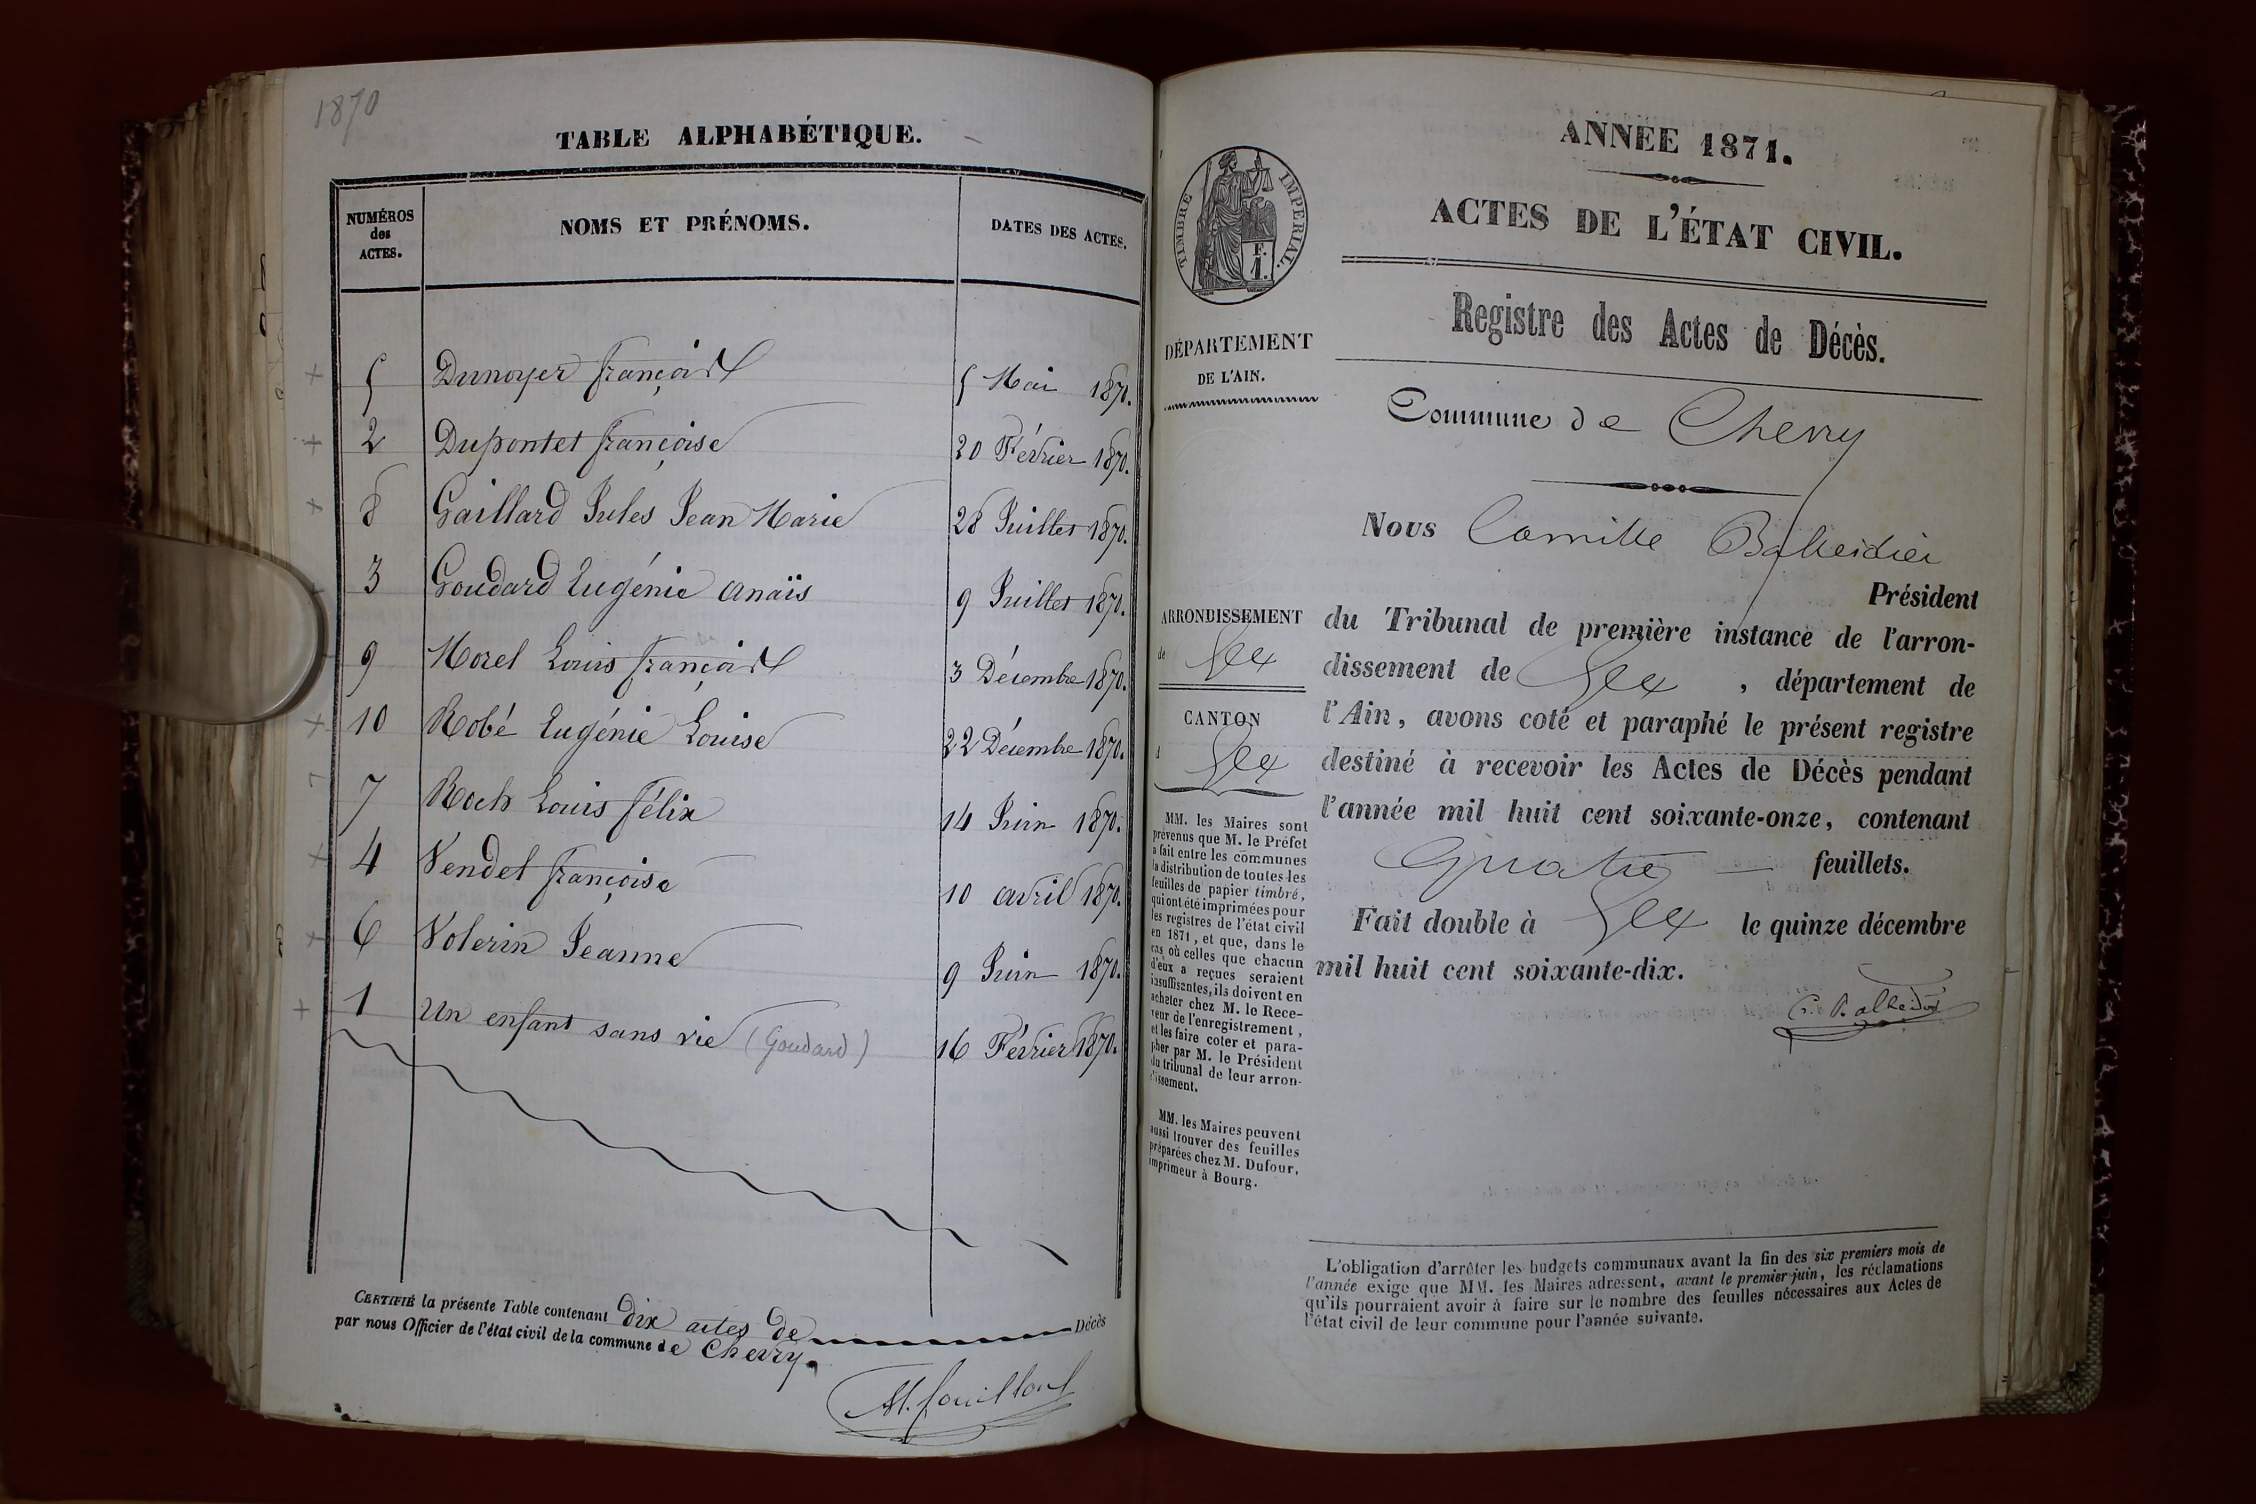 1870
TABLE ALPHABÉTIQUE.
NUMÉROS
des
ACTES.
NOMS ET PRÉNOMS.
DATES DES ACTES.
5 Dunoyer françois 5 Mai 1870.
2 Dupontet françoise 20 Février 1870.
8 Gaillard Jules Jean Marie 28 Juillet 1870.
3 Goudard Eugénie anaïs 9 Juillet 1870.
9 Morel Louis françois 3 Décembre 1870.
10 Robé Eugénie Louise 22 Décembre 1870.
7 Roch Louis félix 14 Juin 1870.
4 Vendel françoise 10 avril 1870.
6 Volerin Jeanne 9 Juin 1870.
1 Un enfant sans vie (Goudard) 16 Février 1870.
CERTIFIÉ la présente Table contenant dix actes de Décès
par nous Officier de l'état civil de la commune de Chevry.
M. fouilloud
ANNÉE 1871.
TIMBRE IMPÉRIAL.
F.
1.
ACTES DE L'ÉTAT CIVIL.
Registre des Actes de Décès.
DÉPARTEMENT
DE L'AIN.
Commune de Chevry
Nous Camille Balleidier
Président
du Tribunal de première instance de l'arron-
dissement de Gex, département de
l'Ain, avons coté et paraphé le présent registre
destiné à recevoir les Actes de Décès pendant
l'année mil huit cent soixante-onze, contenant
Quatre feuillets.
Fait double à Gex le quinze décembre
mil huit cent soixante-dix.
C. Balleidier
ARRONDISSEMENT
de Gex
CANTON
d Gex
MM. les Maires sont
prévenus que M. le Préfet
a fait entre les communes
la distribution de toutes les
feuilles de papier timbré,
qui ont été imprimées pour
les registres de l'état civil
en 1871, et que, dans le
cas où celles que chacun
d'eux a reçues seraient
insuffisantes, ils doivent en
acheter chez M. le Rece-
veur de l'enregistrement,
et les faire coter et para-
pher par M. le Président
du tribunal de leur arron-
dissement.
MM. les Maires peuvent
aussi trouver des feuilles
préparées chez M. Dufour,
imprimeur à Bourg.
L'obligation d'arrêter les budgets communaux avant la fin des six premiers mois de
l'année exige que MM. les Maires adressent, avant le premier juin, les réclamations
qu'ils pourraient avoir à faire sur le nombre des feuilles nécessaires aux Actes de
l'état civil de leur commune pour l'année suivante.